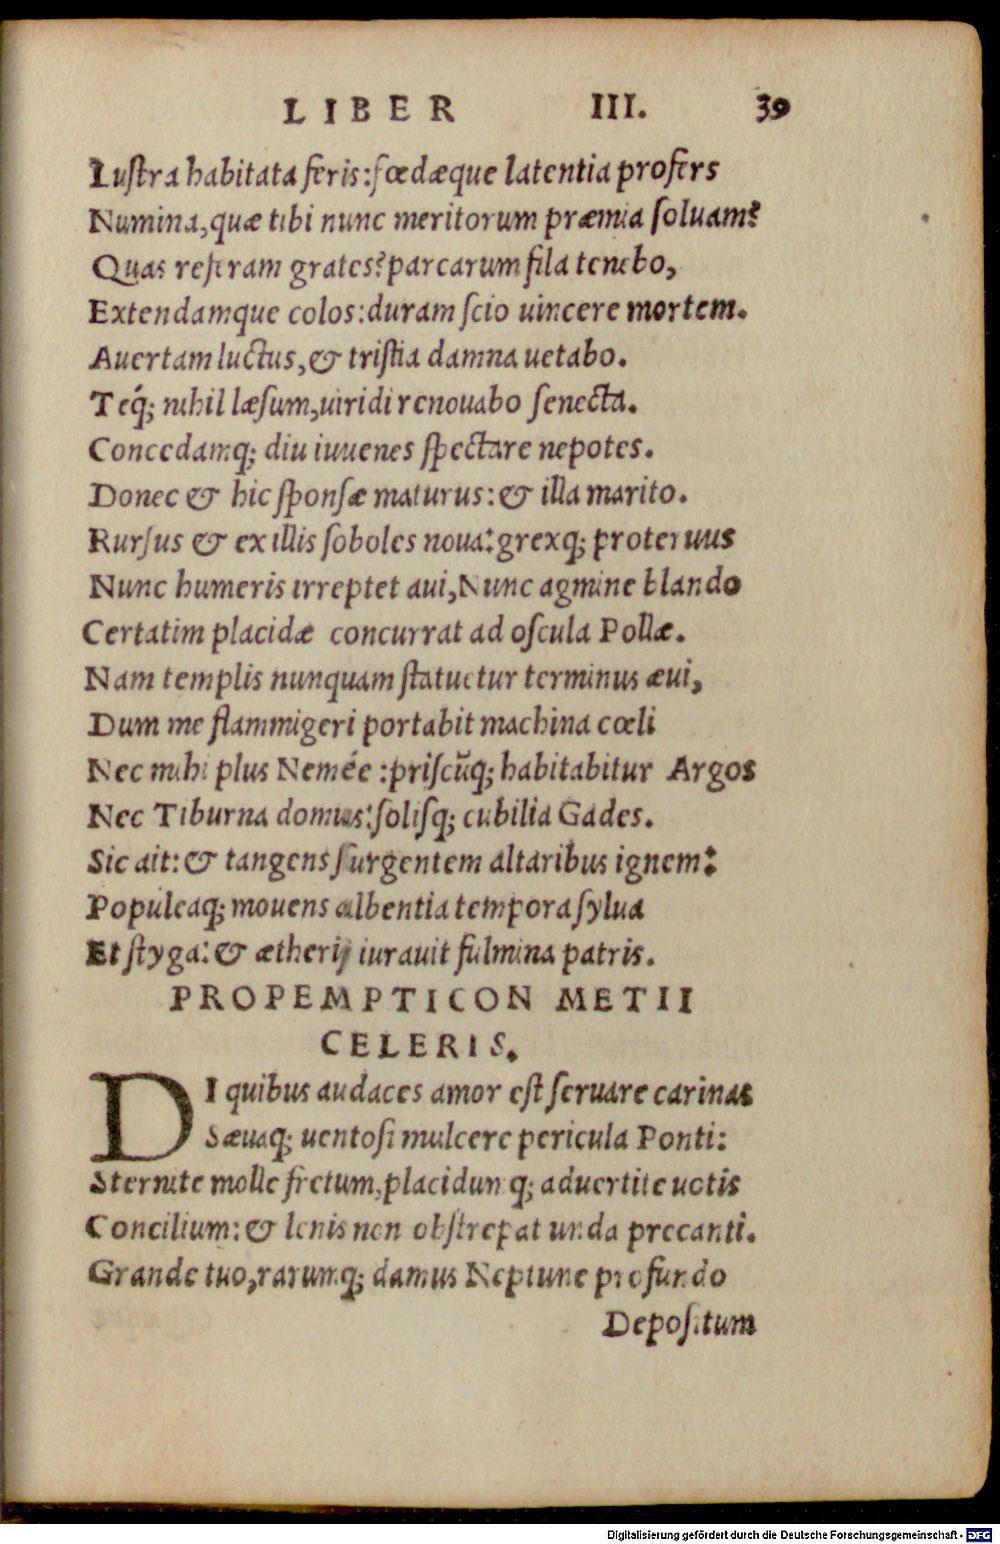 LIBER III. 39
Lustra habitata feris: fœdæque latentia profers
Numina, quæ tibi nunc meritorum præmia soluam?
Quas referam grates? parcarum fila tenebo,
Extendamque colos: duram scio uincere mortem.
Auertam luctus, & tristia damna uetabo.
Teq́; nihil læsum, uiridi renouabo senecta.
Concedamq; diu iuuenes spectare nepotes.
Donec & hic sponsæ maturus: & illa marito.
Rursus & ex illis soboles noua: grexq; proteruus
Nunc humeris irreptet aui, Nunc agmine blando
Certatim placidæ concurrat ad oscula Pollæ.
Nam templis nunquam statuetur terminus æui,
Dum me flammigeri portabit machina cœli
Nec mihi plus Nemée : priscũq; habitabitur Argos
Nec Tiburna domus: solisq; cubilia Gades.
Sic ait: & tangens surgentem altaribus ignem:
Populeaq; mouens albentia tempora sylua
Et styga: & ætherij iurauit fulmina patris.
PROPEMPTICON METII
CELERIS.
DI quibus audaces amor est seruare carinas
Sæuaq; uentosi mulcere pericula Ponti:
Sternite molle fretum, placidumq; aduertite uotis
Concilium: & lenis non obstrepat unda precanti.
Grande tuo, rarumq; damus Neptune profundo
Depositum
Digitalisierung gefördert durch die Deutsche Forschungsgemeinschaft - DFG